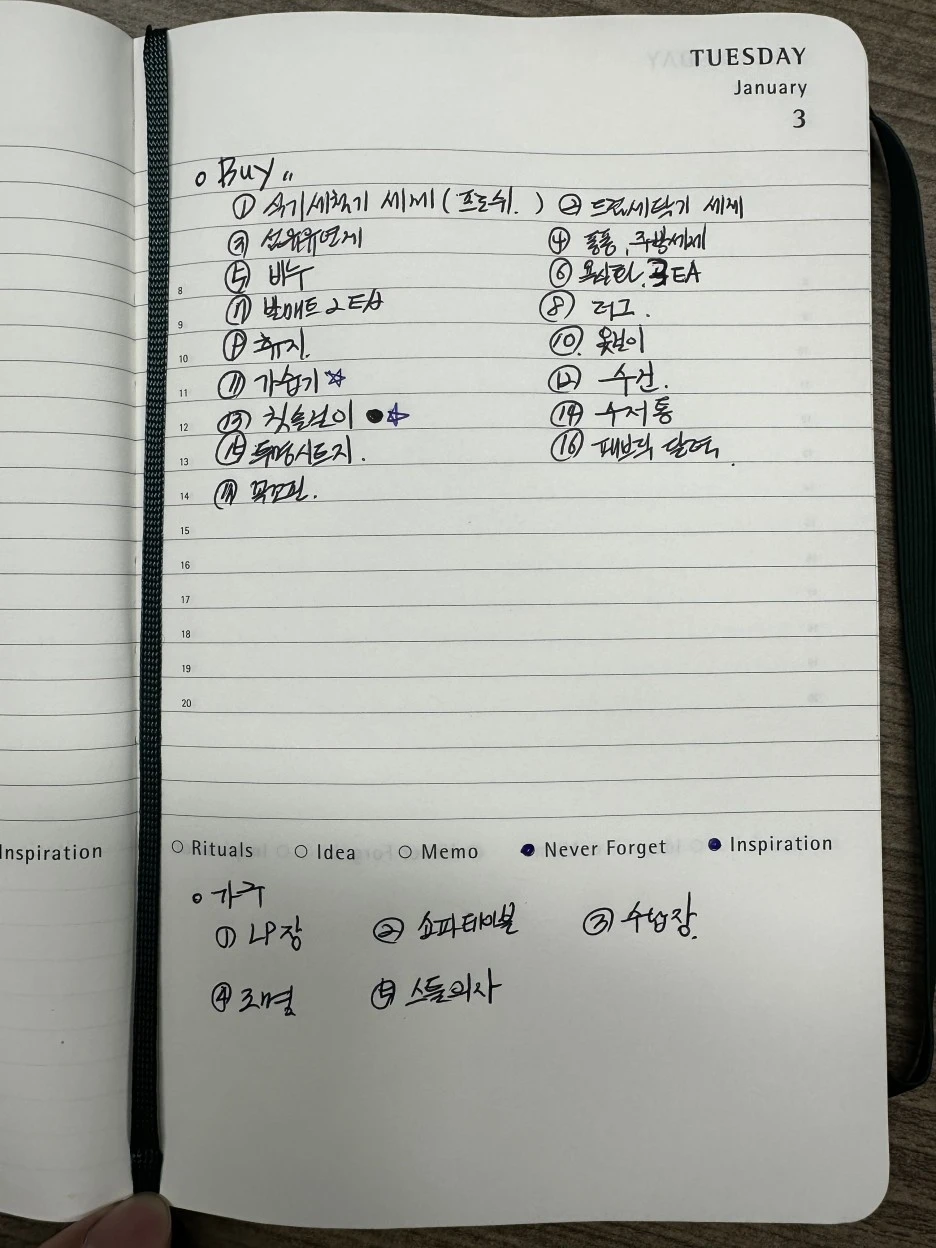 TUESDAY
January
3
o Buy "
① 식기세척기 세제 (프로쉬.) ② 드럼세탁기 세제
③ 섬유유연제 ④ 퐁퐁, 주방세제
8 ⑤ 비누 ⑥ EA
9 ⑦ 발매트 2EA ⑧ 러그.
10 ⑨ 휴지. ⑩ 옷걸이
11 ⑪ 가습기 ☆ ⑫ 수건.
12 ⑬ 칫솔걸이 ●☆ ⑭ 수저통
13 ⑮ 투명시트지. ⑯ 패브릭 달력.
14 ⑰ 꼭꼬핀.
15
16
17
18
19
20
Inspiration ○ Rituals ○ Idea ○ Memo ● Never Forget ● Inspiration
o 가구
① LP장 ② 쇼파테이블 ③ 수납장.
④ 조명 ⑤ 스툴의자